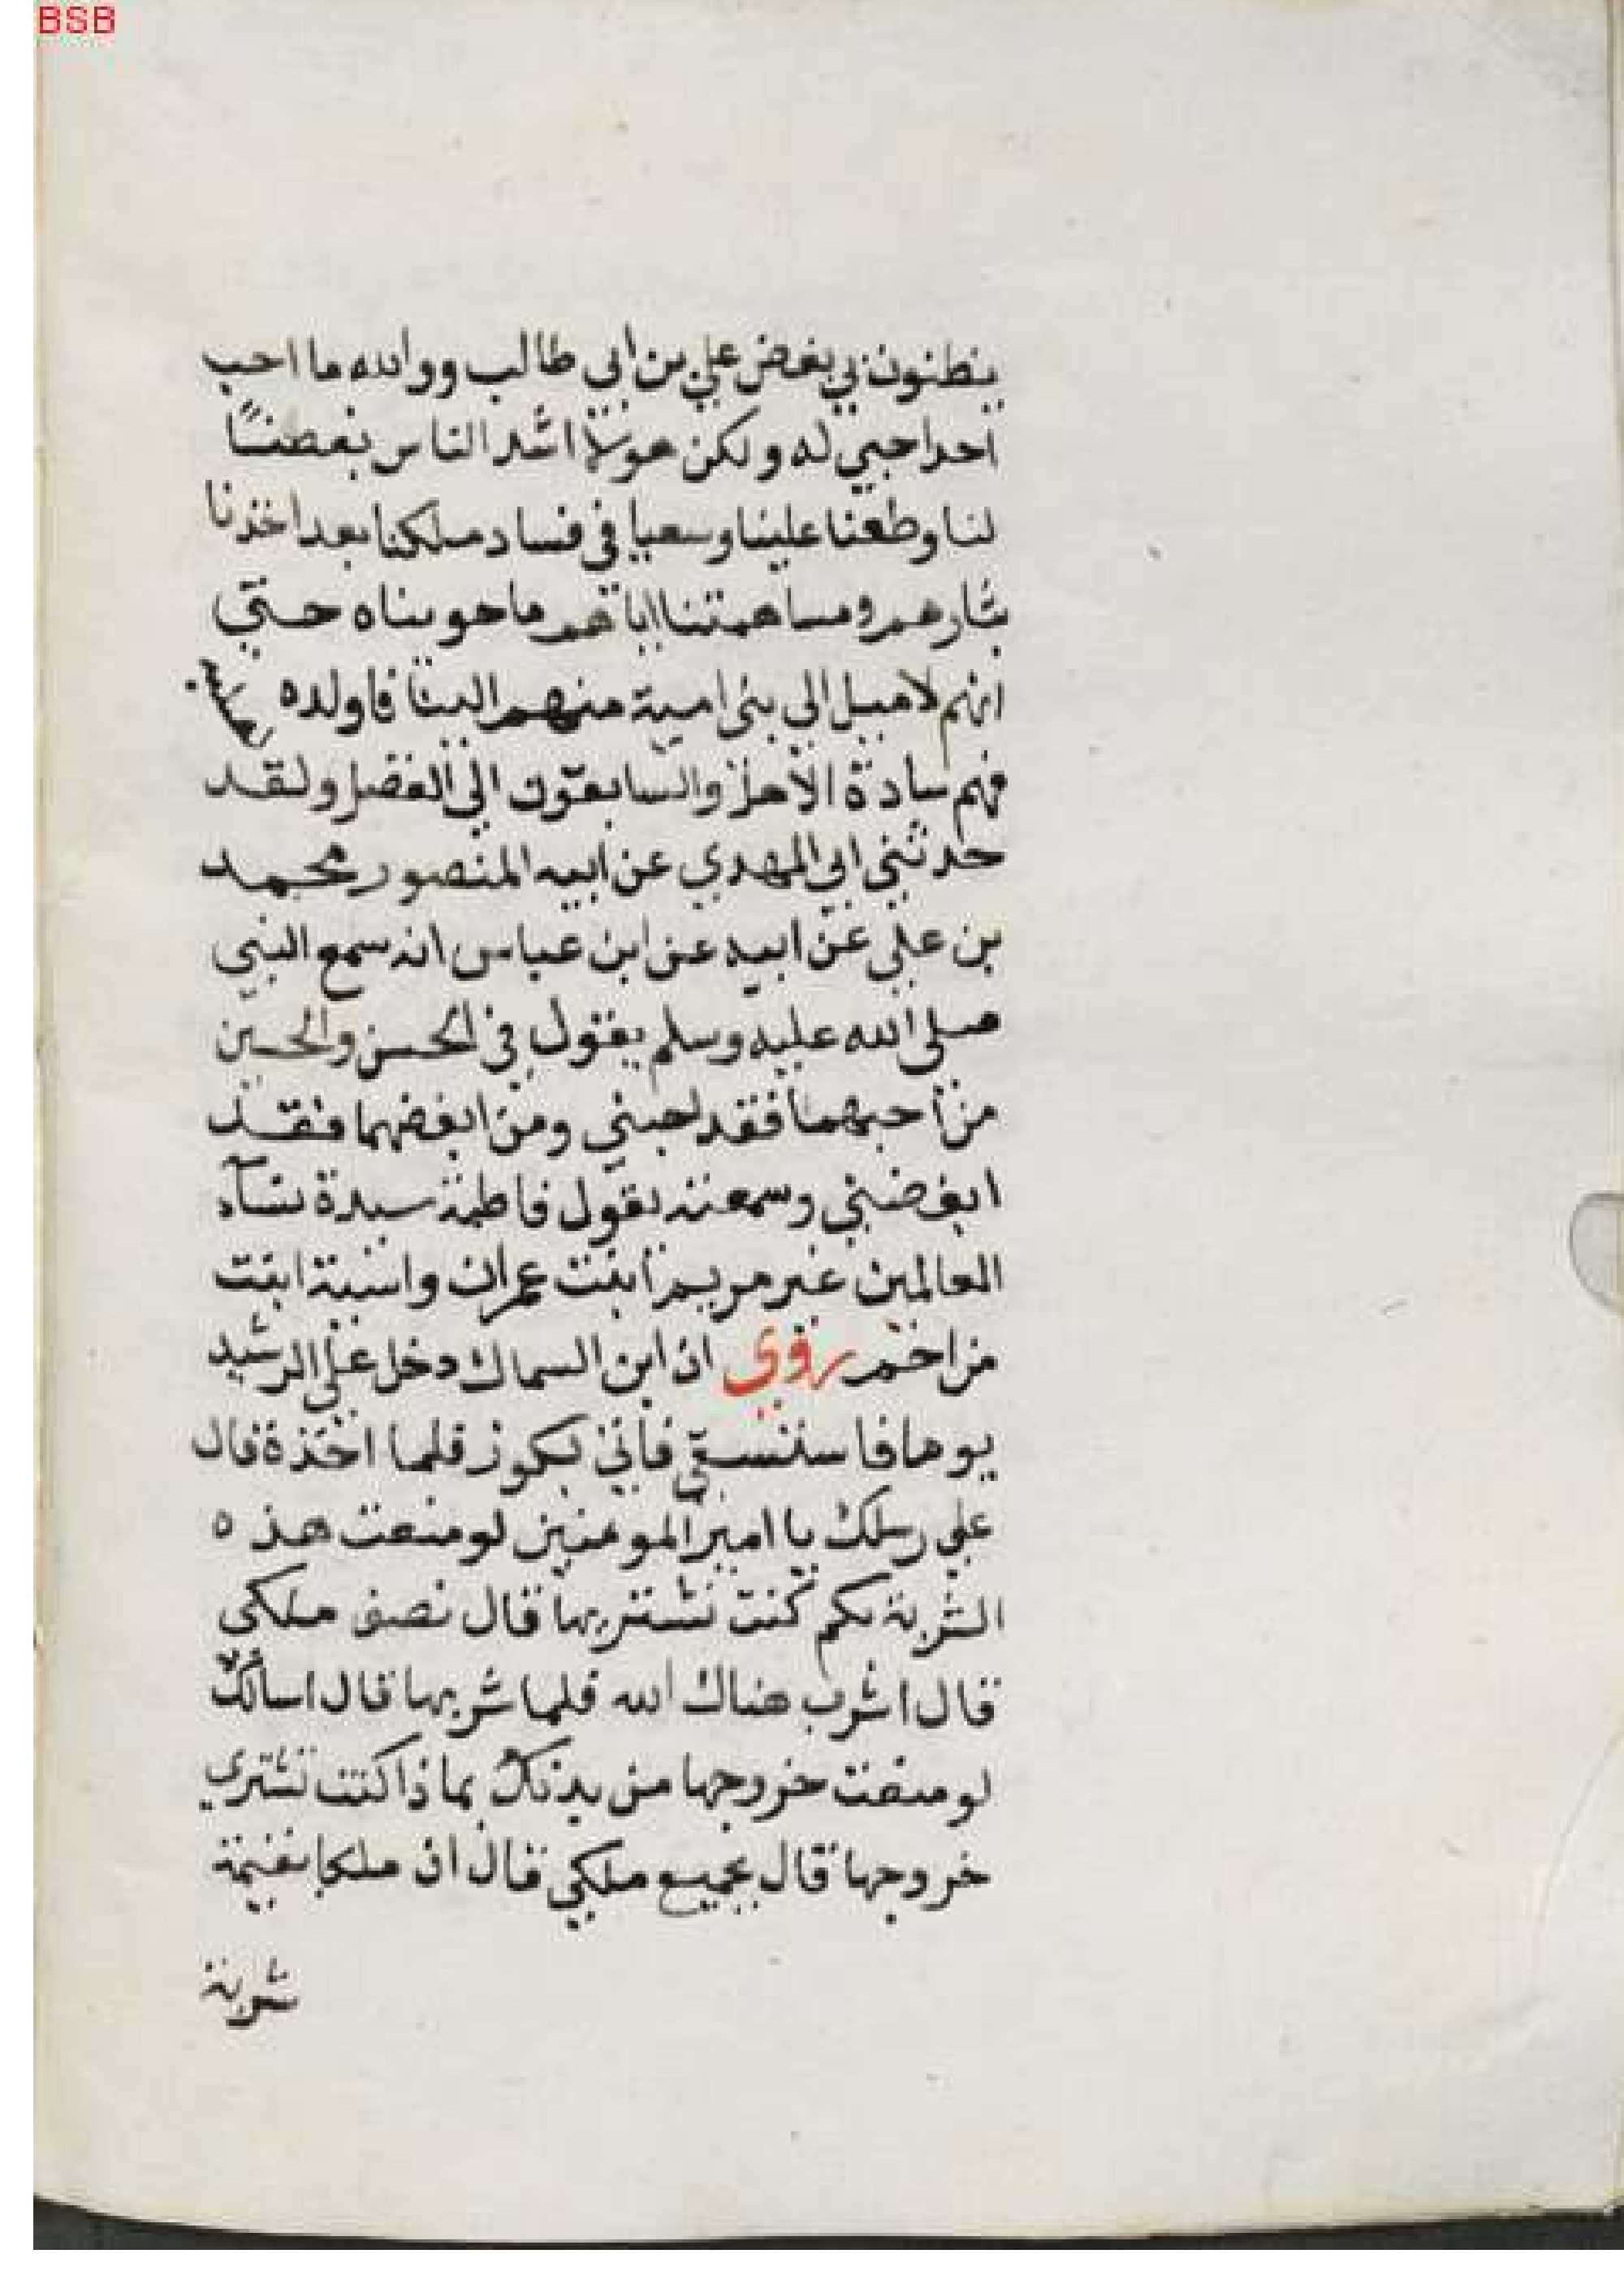 BSB
يظنون بي بغض علي بن ابي طالب ووالله ما احب
احدا حبي له ولكن هولآ اشد الناس بغضًا
لنا وطعنا علينا وسعيا في فساد ملكنا بعد اخذنا
بثارهم ومساهمتنا اياهم ما حويناه حتي
انهم لاميل الي بني امية منهم الينا فاولده لصلبه
فهم سادة الاهل والسابقون الي الفضل ولقد
حدثني ابي المهدي عن ابيه المنصور محمد
بن علي عن ابيه عن ابن عباس انه سمع النبي
صلي الله عليه وسلم يقول في الحسن والحسين
من احبهما فقد احبني ومن ابغضهما فقد
ابغضني وسمعته يقول فاطمة سيدة نسآء
العالمين غير مريم ابنت عمران واسية ابنت
مزاحم روي ان ابن السماك دخل علي الرشيد
يوما فاستسقي فاتي بكوز فلما اخذة قال
علي رسلك يا امير المومنين لو منعت هذه
الشربة بكم كنت تشتريها قال نصف ملكي
قال اشرب هناك الله فلما شربها قال اسالك
لو منعت خروجها من بدنك بماذا كنت تشتري
خروجها قال بجميع ملكي قال ان ملكا بقيمة
شربة